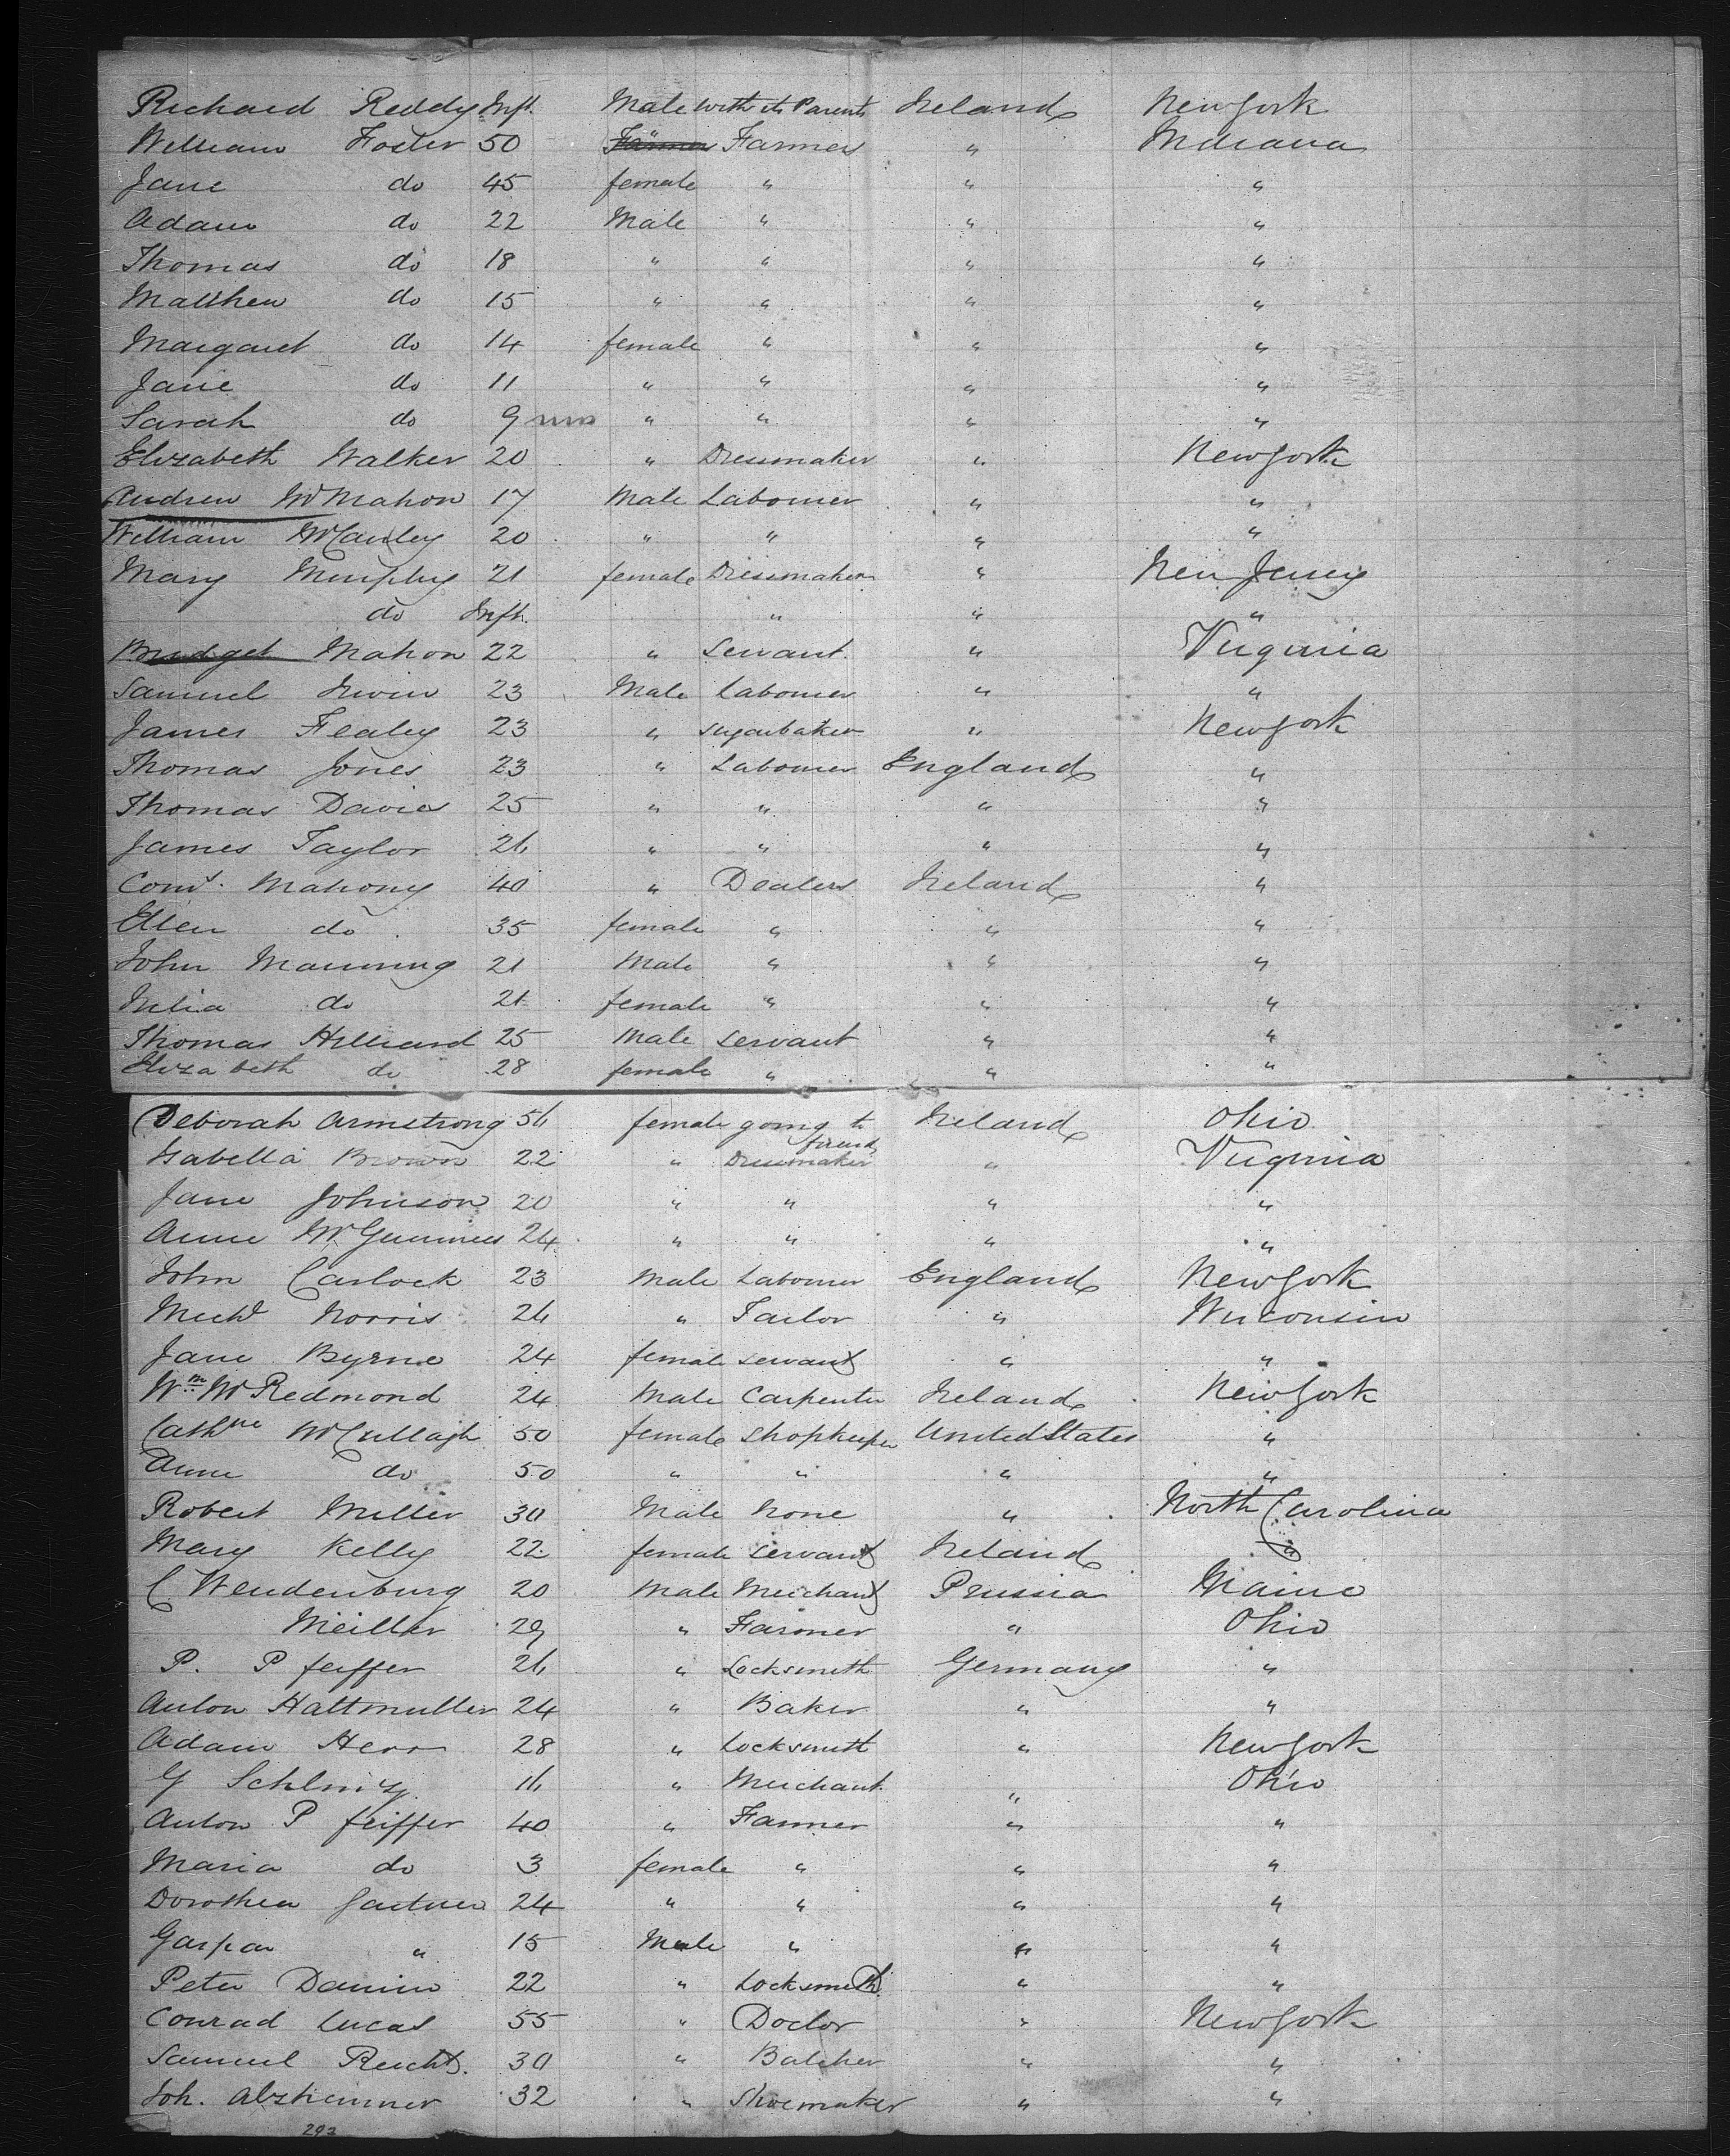 Richard Reddy Inft. Male with its Parents Ireland New York
William Foster 50 " Farmer " Indiana
Jane do 45 female " " "
Adam do 22 Male " " "
Thomas do 18 " " " "
Matthew do 15 " " " "
Margaret do 14 female " " "
Jane do 11 " " " "
Sarah do 9 mos " " " "
Elizabeth Walker 20 " Dressmaker " New York
Andrew McMahon 17 Male Labourer " "
William McCauley 20 " " " "
Mary Murphy 21 female Dressmaker " New Jersey
do Inft. " " "
Bridget Mahon 22 " Servant " Virginia
Samuel Irwin 23 Male Labourer " "
James Fealey 23 " sugarbaker " New York
Thomas Jones 23 " Labourer England "
Thomas Davies 25 " " " "
James Taylor 26 " " " "
Mahony 40 " Dealers Ireland "
Ellen do 35 female " " "
John Manning 21 Male " " "
Julia do 21 female " " "
Thomas Hilliard 25 Male Servant " "
Elizabeth do 28 female " " "
Deborah Armstrong 56 female going to friends Ireland Ohio
Isabella Brown 22 " Dressmaker " Virginia
Jane Johnson 20 " " " "
Anne McGuinness 24 " " " "
John Carlock 23 Male Labourer England New York
Michl Norris 26 " Tailor " Wisconsin
Jane Byrne 24 female servant " "
Wm McRedmond 24 Male Carpenter Ireland New York
Cathne McCullagh 50 female Shopkeeper United States "
Anne do 50 " " " "
Robert Miller 30 Male None " North Carolina
Mary Kelly 22 female servant Ireland "
C Wendenburg 20 Male Merchant Prussia Maine
29 " Farmer " Ohio
P. Pfeiffer 26 " Locksmith Germany "
Anton Haltmuller 24 " Baker " "
Adam Herr 28 " Locksmith " New York
G 16 " Merchant " Ohio
Anton Pfeiffer 40 " Farmer " "
Maria do 3 female " " "
Dorothea 24 " " " "
Gaspar " 15 Male " " "
Peter 22 " Locksmith " "
Conrad Lucas 55 " Doctor " New York
Samuel 30 " Butcher " "
Joh. 32 " Shoemaker " "
293